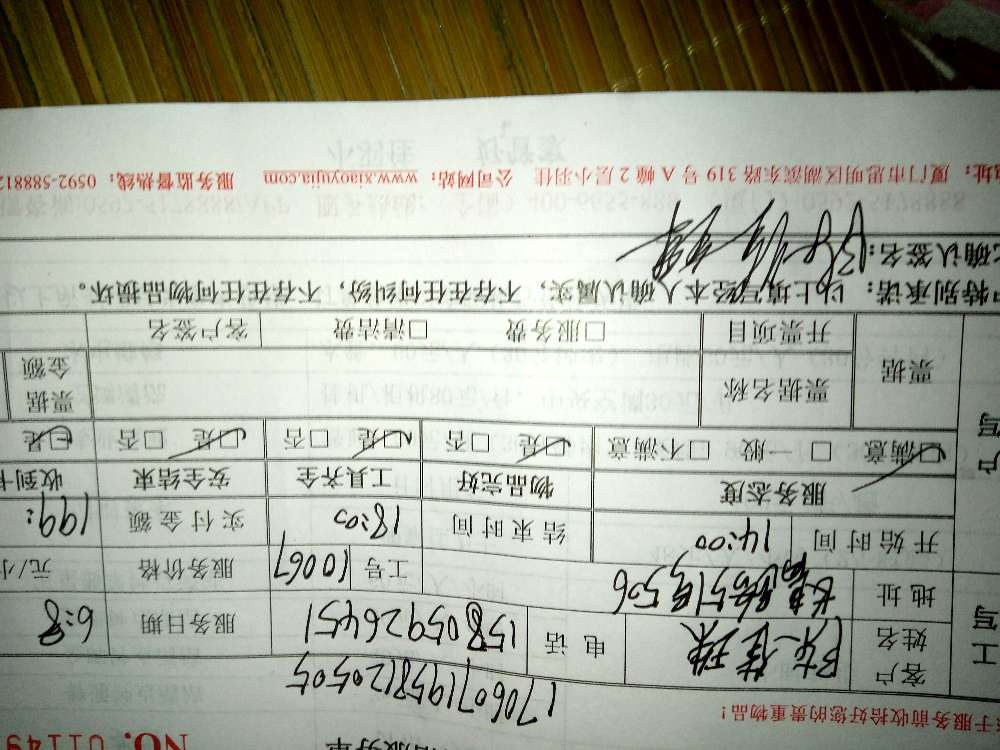 NO. 01149
请于服务前收拾好您的贵重物品！
1706071958120505
客户姓名 陈佳 电话 15805926451 服务日期 6:8
地址 号506 工号 10067 服务价格 元/小
开始时间 14:00 结束时间 18:00 实付金额 199:
服务态度 物品完好 工具齐全 安全结束 收到卡
☑满意 □一般 □不满意 ☑是 □否 ☑是 □否 ☑是 □否 ☑是
票据 票据名称 票据金额
开票项目 □服务费 □清洁费 客户签名
特别承诺：以上填写经本人确认属实，不存在任何纠纷，不存在任何物品损坏。
确认签名：
地址：厦门市思明区湖滨东路 319 号 A 幢 2 层小羽佳 公司网站：www.xiaoyujia.com 服务监督热线：0592-588812